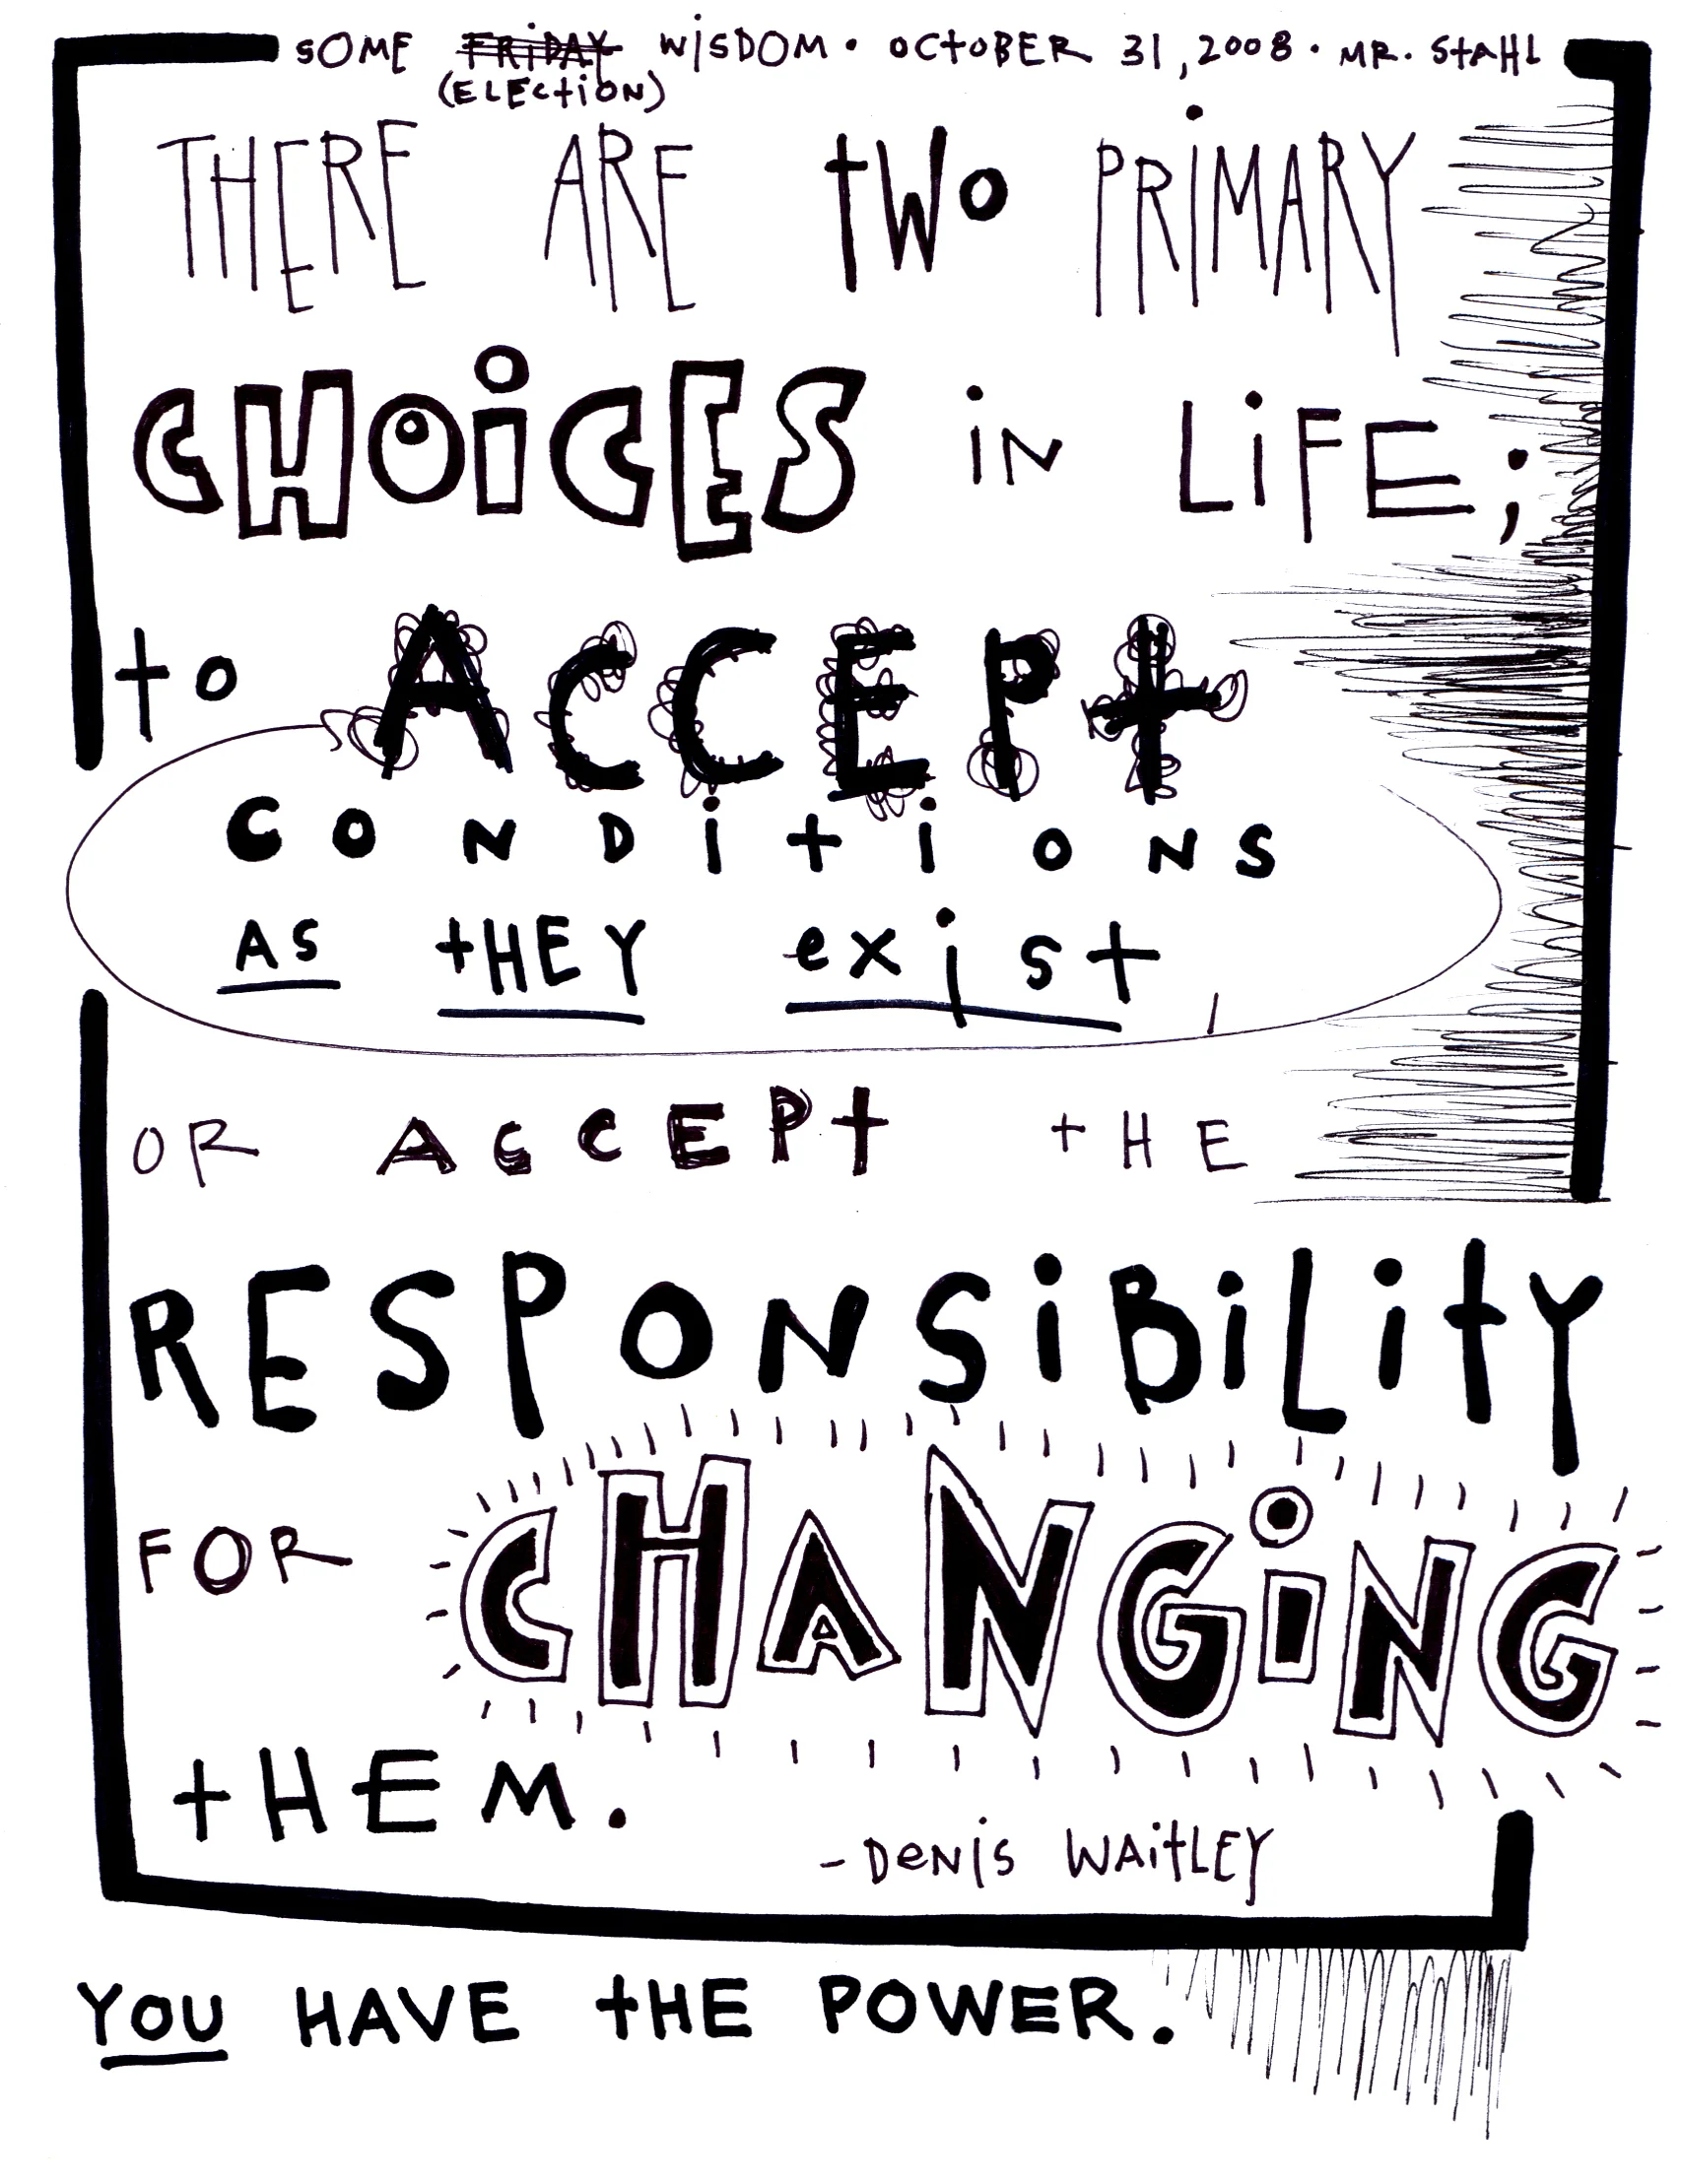 SOME FRIDAY WISDOM • OCTOBER 31, 2008 • MR. STAHL
(ELECTION)
THERE ARE TWO PRIMARY
CHOICES IN LIFE;
TO ACCEPT
CONDITIONS
AS THEY exist,
OR ACCEPT THE
RESPONSIBILITY
FOR CHANGING
THEM.
- DeNis WAITLEY
YOU HAVE THE POWER.